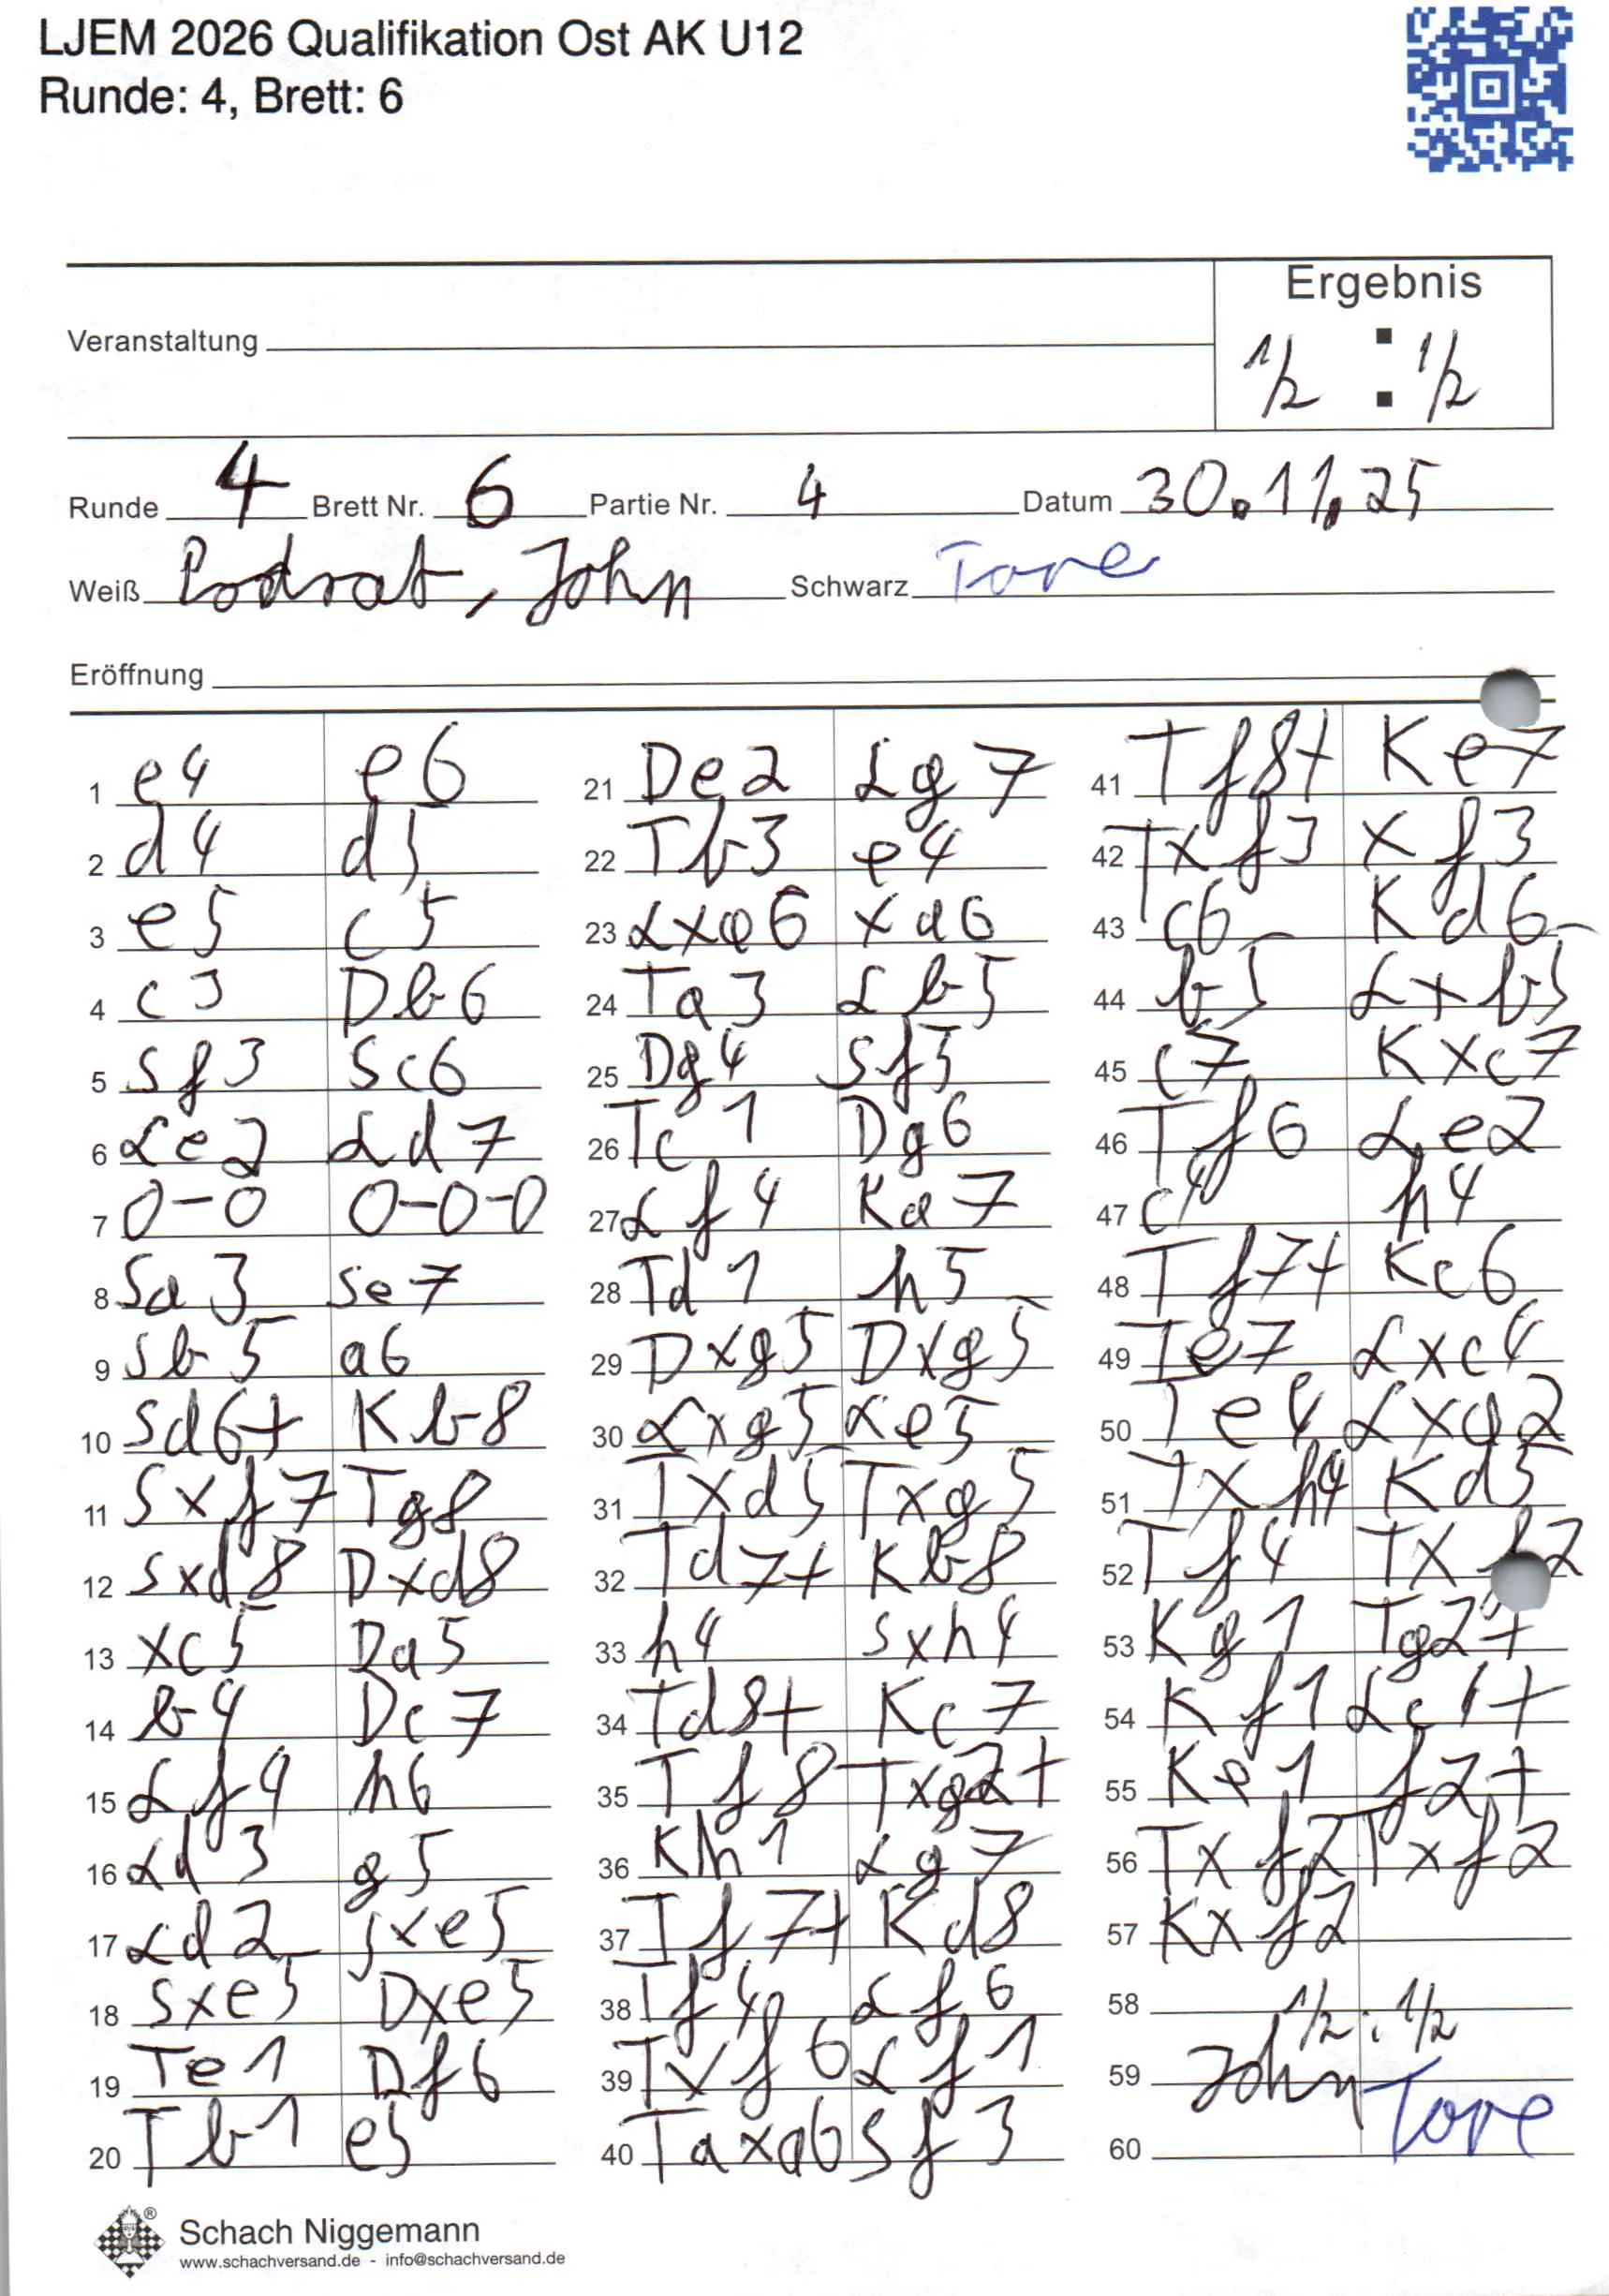 LJEM 2026 Qualifikation Ost AK U12
Runde: 4, Brett: 6
Ergebnis
Veranstaltung
1/2 : 1/2
Runde 4 Brett Nr. 6 Partie Nr. 4 Datum 30.11.25
Weiß Podrat, John Schwarz Tore
Eröffnung
1 e4 e6
2 d4 d5
3 e5 c5
4 c3 Db6
5 Sf3 Sc6
6 Le2 Ld7
7 0-0 0-0-0
8 Sa3 Se7
9 Sb5 a6
10 Sd6+ Kb8
11 Sxf7 Tg8
12 Sxd8 Dxd8
13 xc5 Da5
14 b4 Dc7
15 Lf4 h6
16 Ld3 g5
17 Ld2 Sxe5
18 Sxe5 Dxe5
19 Te1 Df6
20 Tb1 e5
21 De2 Lg7
22 Tb3 e4
23 Lxa6 xa6
24 Ta3 Lb5
25 Dg4 Sf5
26 Tc1 Dg6
27 Lf4 Ka7
28 Td1 h5
29 Dxg5 Dxg5
30 Lxg5 Le5
31 Txd5 Txg5
32 Td7+ Kb8
33 h4 Sxh4
34 Td8+ Kc7
35 Tf8 Txg2+
36 Kh1 Lg7
37 Tf7+ Kd8
38 Tf4 Lf6
39 Txf6 Lf1
40 Taxa6 Sf3
41 Tf8+ Ke7
42 Txf3 xf3
43 c6 Kd6
44 b5 Lxb5
45 c7 Kxc7
46 Tf6 Le2
47 c4 h4
48 Tf7+ Kc6
49 Te7 Lxc4
50 Te4 Lxa2
51 Txh4 Kd5
52 Tf4 Tx
53 Kg1 Tg2+
54 Kf1 Lc4+
55 Ke1 f2+
56 Txf2 Txf2
57 Kxf2
58 1/2 : 1/2
59 John Tore
60
Schach Niggemann
www.schachversand.de - info@schachversand.de